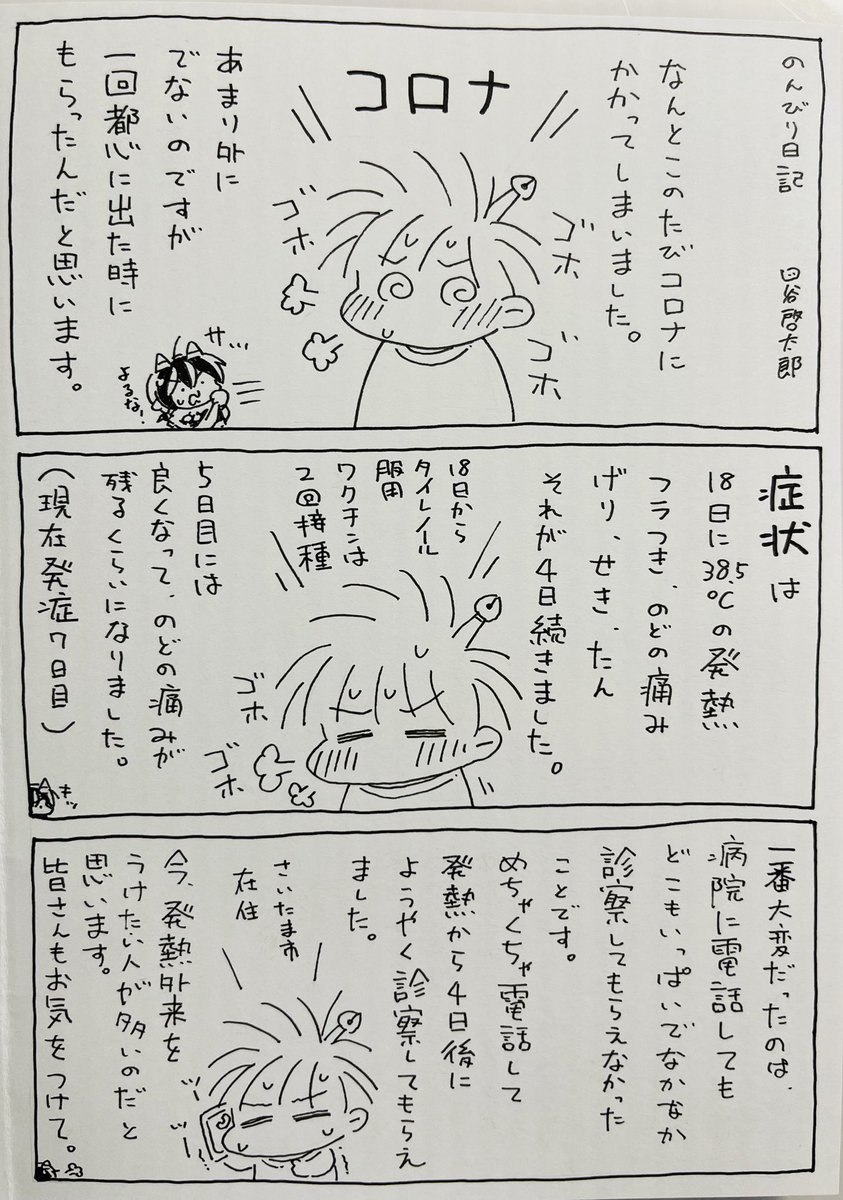 のんびり日記
四谷啓太郎
なんとこのたびコロナに
かかってしまいました。
コロナ
ゴホ
ゴホ
ゴホ
あまり外に
でないのですが
一回都心に出た時に
もらったんだと思います。
サ…
よるな!
症状は
18日に38.5℃の発熱
フラつき、のどの痛み
げり、せき、たん
それが4日続きました。
18日から
タイレノール
服用
ワクチンは
2回接種
ゴホ
ゴホ
5日目には
良くなって、のどの痛みが
残るくらいになりました。
(現在発症7日目)
一番大変だったのは、
病院に電話しても
どこもいっぱいでなかなか
診察してもらえなかった
ことです。
めちゃくちゃ電話して
発熱から4日後に
ようやく診察してもらえ
ました。
さいたま市
在住
今、発熱外来を
うけたい人が多いのだと
思います。
皆さんもお気をつけて。